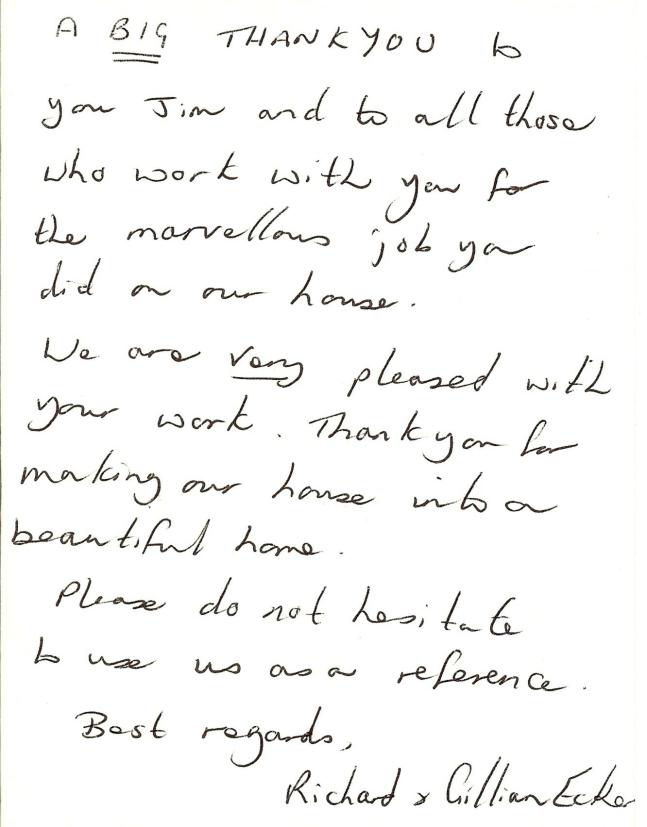 A BIG THANKYOU to
you Jim and to all those
who work with you for
the marvellous job you
did on our house.
We are very pleased with
your work. Thank you for
making our house into a
beautiful home.
Please do not hesitate
to use us as a reference.
Best regards,
Richard & Gillian Ecker